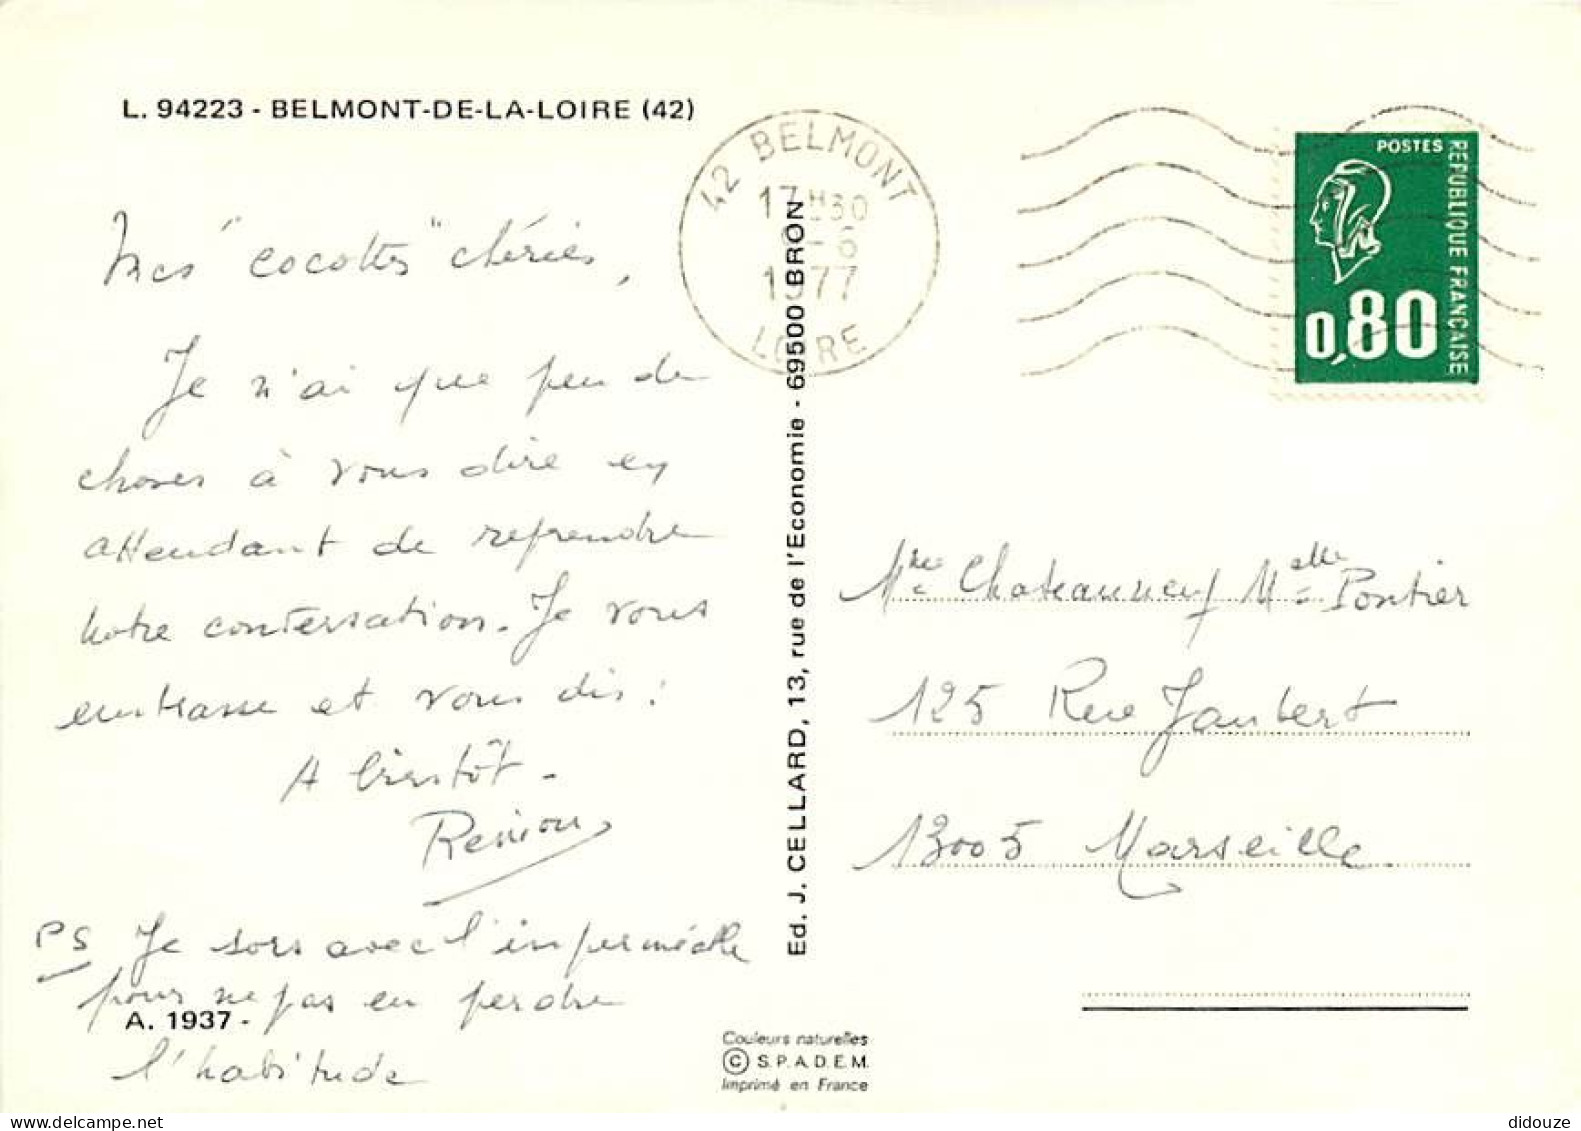 L. 94223 - BELMONT-DE-LA-LOIRE (42)
42 BELMONT
17H30
-6
1977
LOIRE
POSTES
REPUBLIQUE FRANÇAISE
0,80
Mes "cocottes" chéries,
Je n'ai que peu de
choses à vous dire en
attendant de reprendre
notre conversation. Je vous
embrasse et vous dis :
A bientôt -
PS Je sors avec l'imperméable
pour ne pas en perdre
l'habitude
A. 1937 -
Ed. J. CELLARD, 13, rue de l'Economie - 69500 BRON
Mme Chateauneuf Melle Pontier
125 Rue Jaubert
13005 Marseille
Couleurs naturelles
© S.P.A.D.E.M.
Imprimé en France
didouze